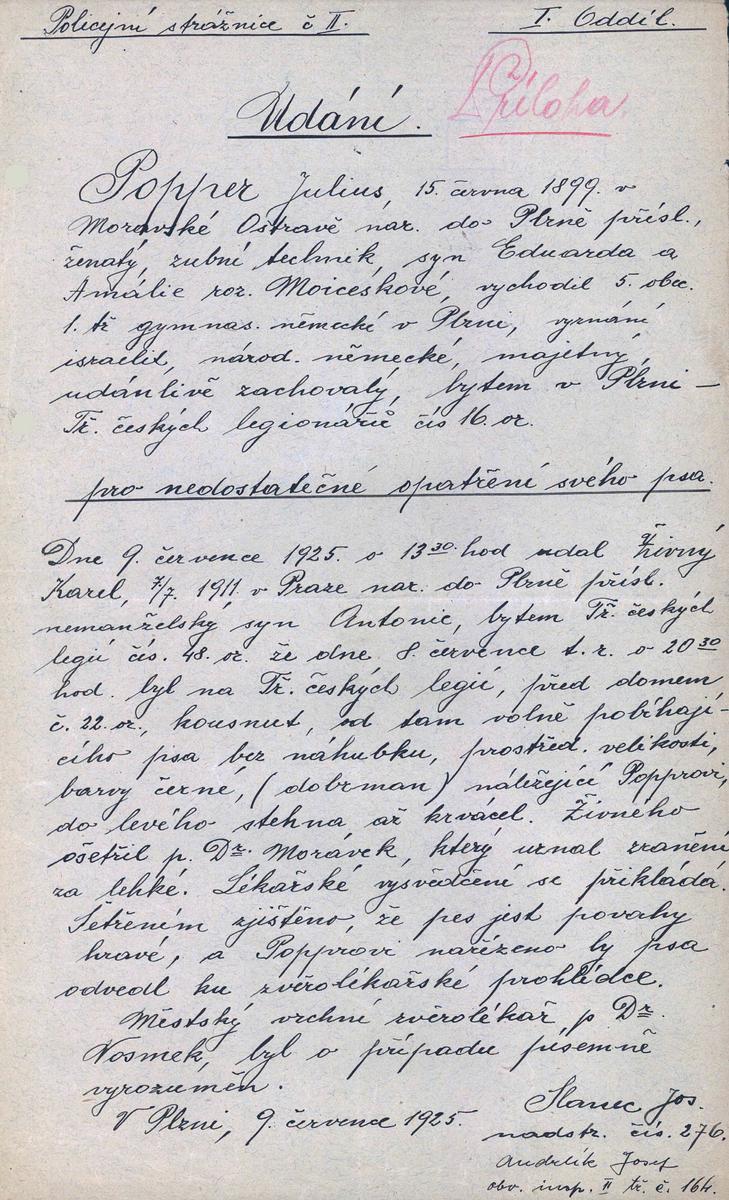 Policejní strážnice č II.
I. Oddíl.
2, Příloha.
Udání.
Popper Julius, 15. června 1899. v
Moravské Ostravě nar. do Plzně přísl.,
ženatý, zubní technik, syn Eduarda a
Amálie roz. Moiceskové, vychodil 5. obec.
1. tř gymnas. německé v Plzni, vyznání
israelit, národ. německé, majetný,
udánlivě zachovalý, bytem v Plzni -
Tř. českých legionářů čís 16. or.
pro nedostatečné opatření svého psa.
Dne 9. července 1925. o 13 30. hod udal Živný
Karel, 7/7. 1911. v Praze nar. do Plzně přísl.
nemanželský syn Antonie, bytem Tř. českých
legií čís. 48. or. že dne 8. července t. r. o 20 30
hod. byl na Tř. českých legií, před domem
č. 22. or., kousnut, od tam volně pobíhají-
cího psa bez náhubku, prostřed. velikosti,
barvy černé, (dobrman) náležející Popprovi,
do levého stehna až krvácel. Živného
ošetřil p. Dr. Morávek, který uznal zranění
za lehké. Lékařské vysvědčení se přikládá.
Šetřením zjištěno, že pes jest povahy
hravé, a Popprovi nařízeno by psa
odvedl ku zvěrolékařské prohlídce.
Městský vrchní zvěrolékař p Dr.
Nosmek, byl o případu písemně
vyrozuměn.
V Plzni, 9. července 1925.
Slanec Jos.
nadstr. čís. 276.
Andrlík Josef
obv. insp. II tř. č. 164.